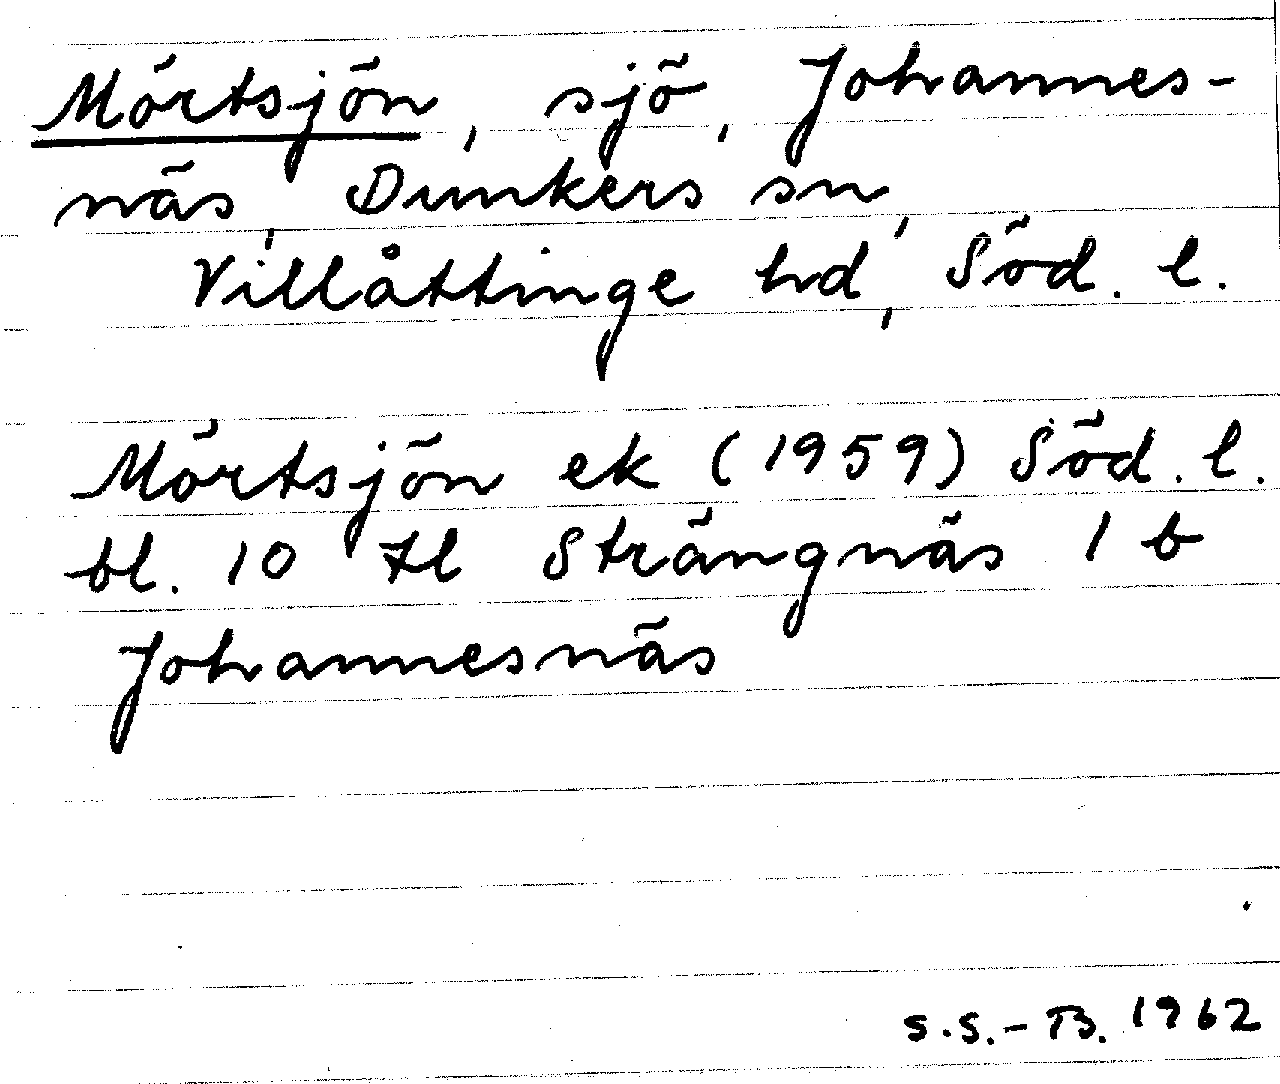 Mörtsjön, sjö, Johannes-
näs, Dunkers sn,
Villåttinge hd, Söd. l.
Mörtsjön ek (1959) Söd. l.
bl. 10 tl Strängnäs 1 b
Johannesnäs
S.S.-B. 1962